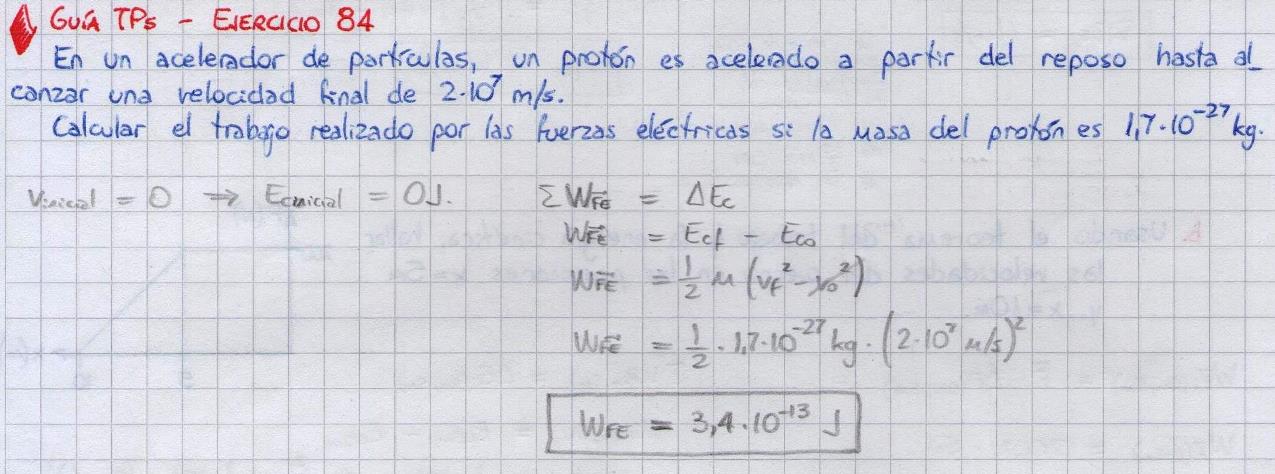 GUÍA TPs - EJERCICIO 84
En un acelerador de partículas, un protón es acelerado a partir del reposo hasta al_
canzar una velocidad final de 2·10⁷ m/s.
Calcular el trabajo realizado por las fuerzas eléctricas si la masa del protón es 1,7·10⁻²⁷ kg.
Vinicial = 0 ⇒ Ecinicial = 0J. ΣW_FE = ΔEc
W_FE = Ecf - Eco
W_FE = 1/2 m (vf² - vo²)
W_FE = 1/2 · 1,7·10⁻²⁷ kg · (2·10⁷ m/s)²
W_FE = 3,4·10⁻¹³ J